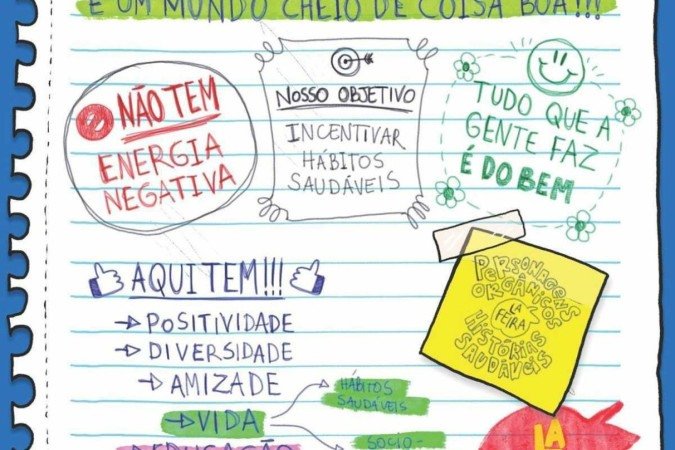 É UM MUNDO CHEIO DE COISA BOA!!!
NÃO TEM
ENERGIA
NEGATIVA
NOSSO OBJETIVO
INCENTIVAR
HÁBITOS
SAUDÁVEIS
TUDO QUE A
GENTE FAZ
É DO BEM
AQUI TEM!!!
POSITIVIDADE
DIVERSIDADE
AMIZADE
VIDA
HÁBITOS
SAUDÁVEIS
EDUCAÇÃO
SOCIO-
PERSONAGENS
ORGÂNICOS
LA
FEIRA
HISTÓRIAS
SAUDÁVEIS
LA